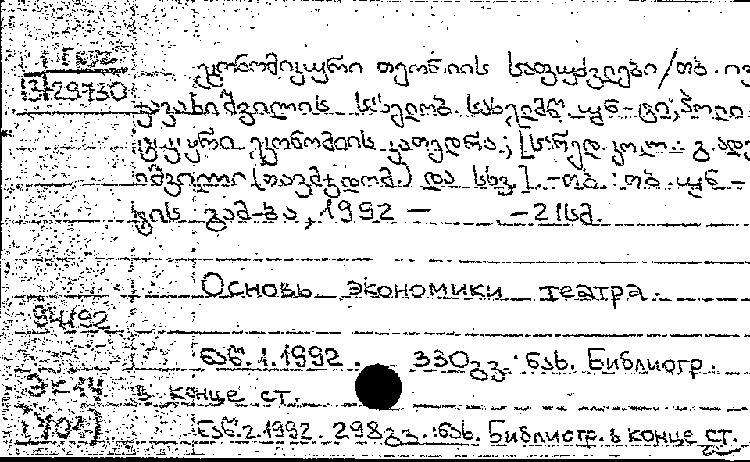 3/29730
ეკონომიკური თეორიის საფუძვლები/თბ. ივ
ჯავახიშვილის სახელობ. სახელმწ. უნ-ტი; პოლი
ეკონომიის კათედრა; [სარედ. კოლ.: გ. ადე
იშვილი (თავმჯდომ.) და სხვ.]. - თბ.: თბ. უნ-
ტის გამ-ბა, 1992 - - 21სმ.
Основы экономики театра.
94192
ნაწ. 1. 1992. 330გვ.: ნახ. Библиогр.
в конце ст.
ნაწ. 2. 1992. 298გვ.: ნახ. Библиогр. в конце ст.